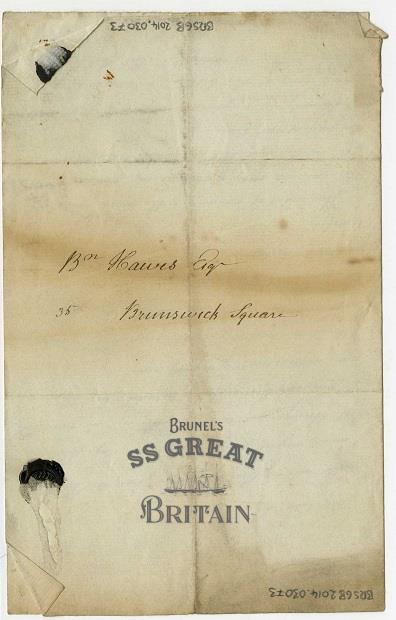 BRSGB 2014.03073
Bⁿ Hawes Esqʳ
35 Brunswick Square
BRUNEL'S
SS GREAT
BRITAIN
BRSGB 2014.03073